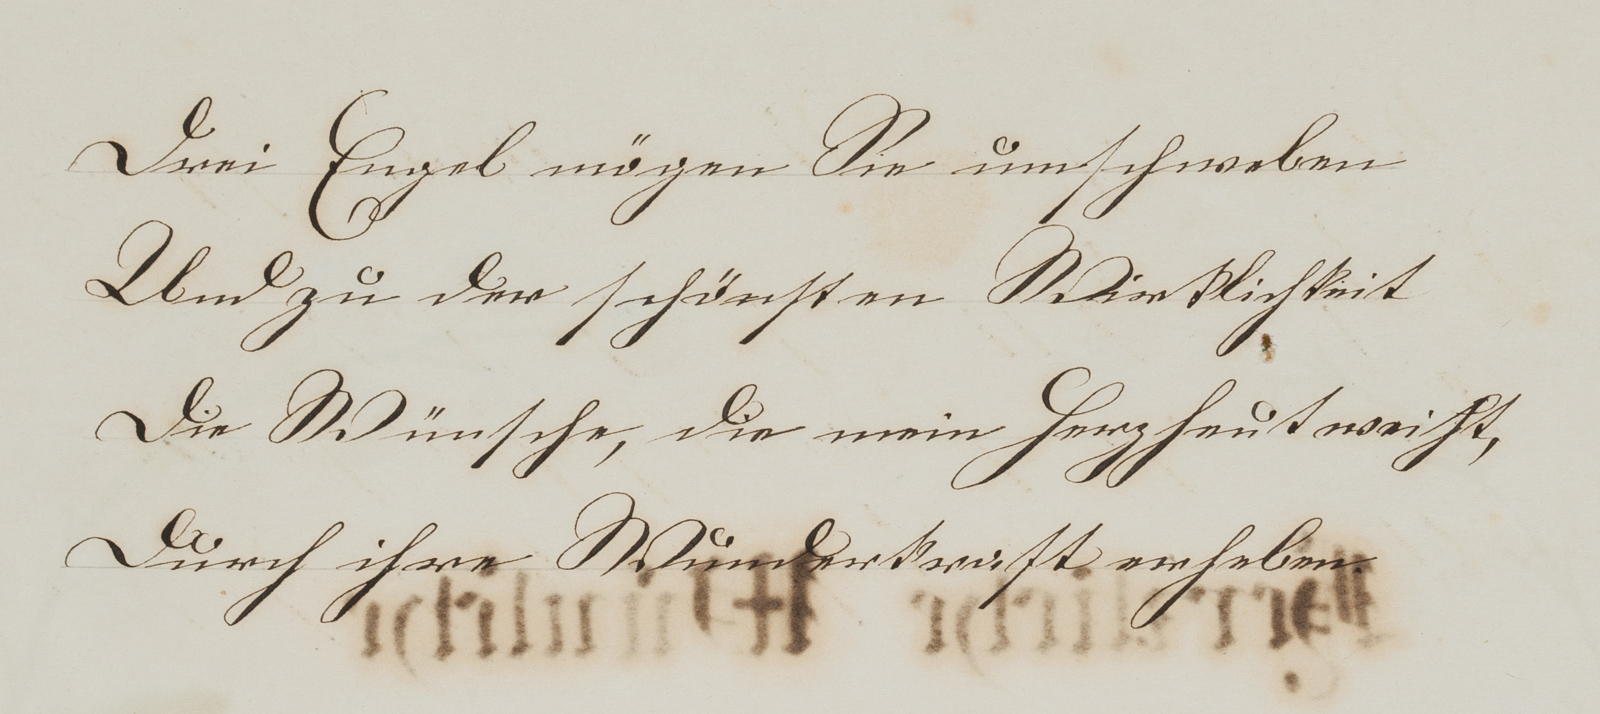 Drei Engel mögen Sie umschweben
Und zu der schönsten Wirklichkeit
Die Wünsche, die mein Herz heut weiht,
Durch ihre Wunderkraft erheben.